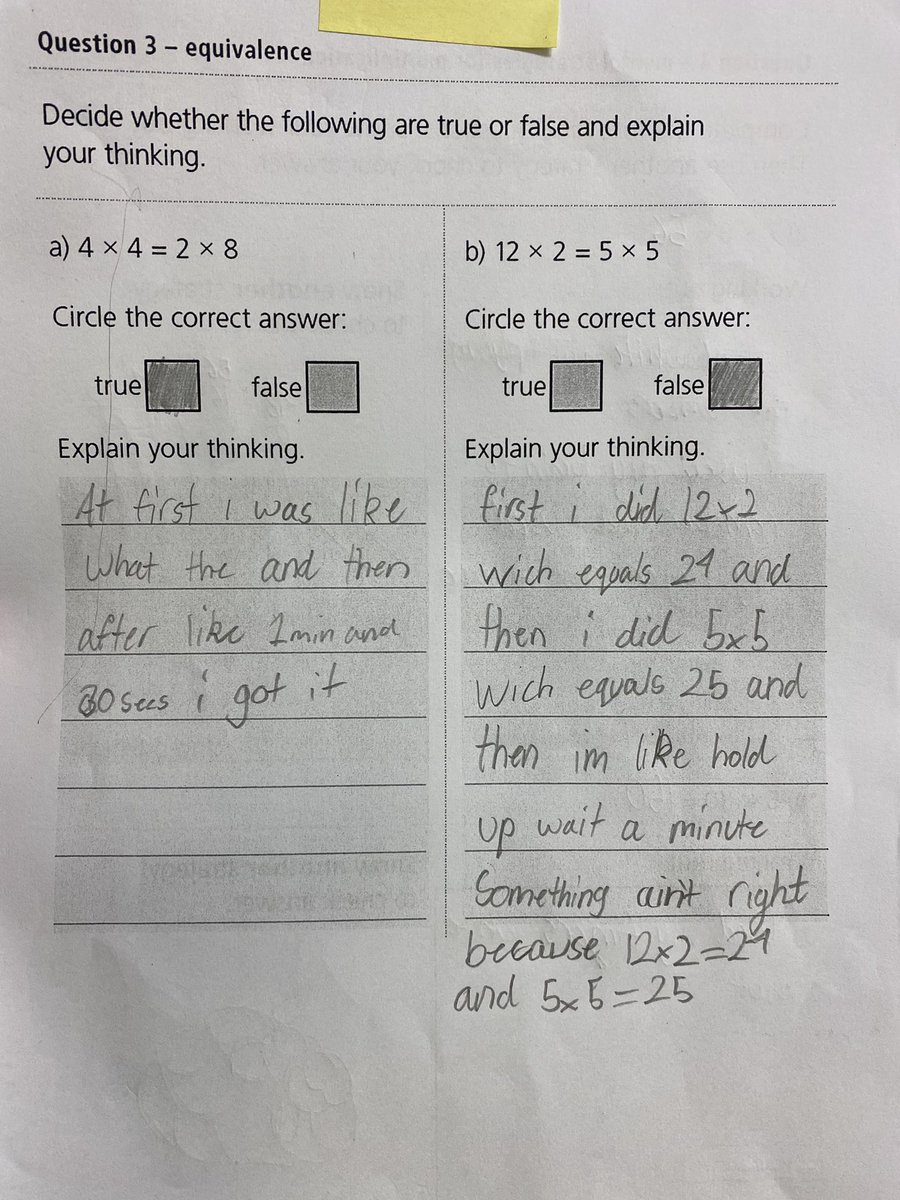 Question 3 – equivalence
Decide whether the following are true or false and explain
your thinking.
a) 4 × 4 = 2 × 8
Circle the correct answer:
true false
Explain your thinking.
At first i was like
What the and then
after like 1min and
30 secs i got it
b) 12 × 2 = 5 × 5
Circle the correct answer:
true false
Explain your thinking.
first i did 12x2
wich equals 24 and
then i did 5x5
wich equals 25 and
then im like hold
up wait a minute
Something ain't right
because 12x2=24
and 5x5=25